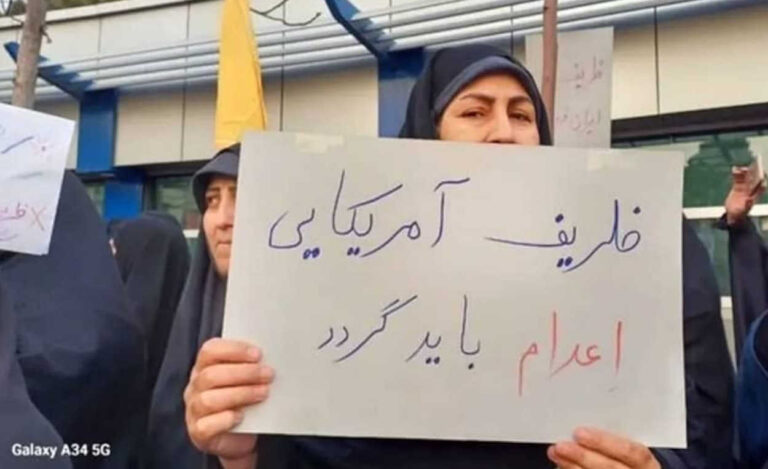 ظریف آمریکایی
اعدام باید گردد
ظریف
ایران
Galaxy A34 5G